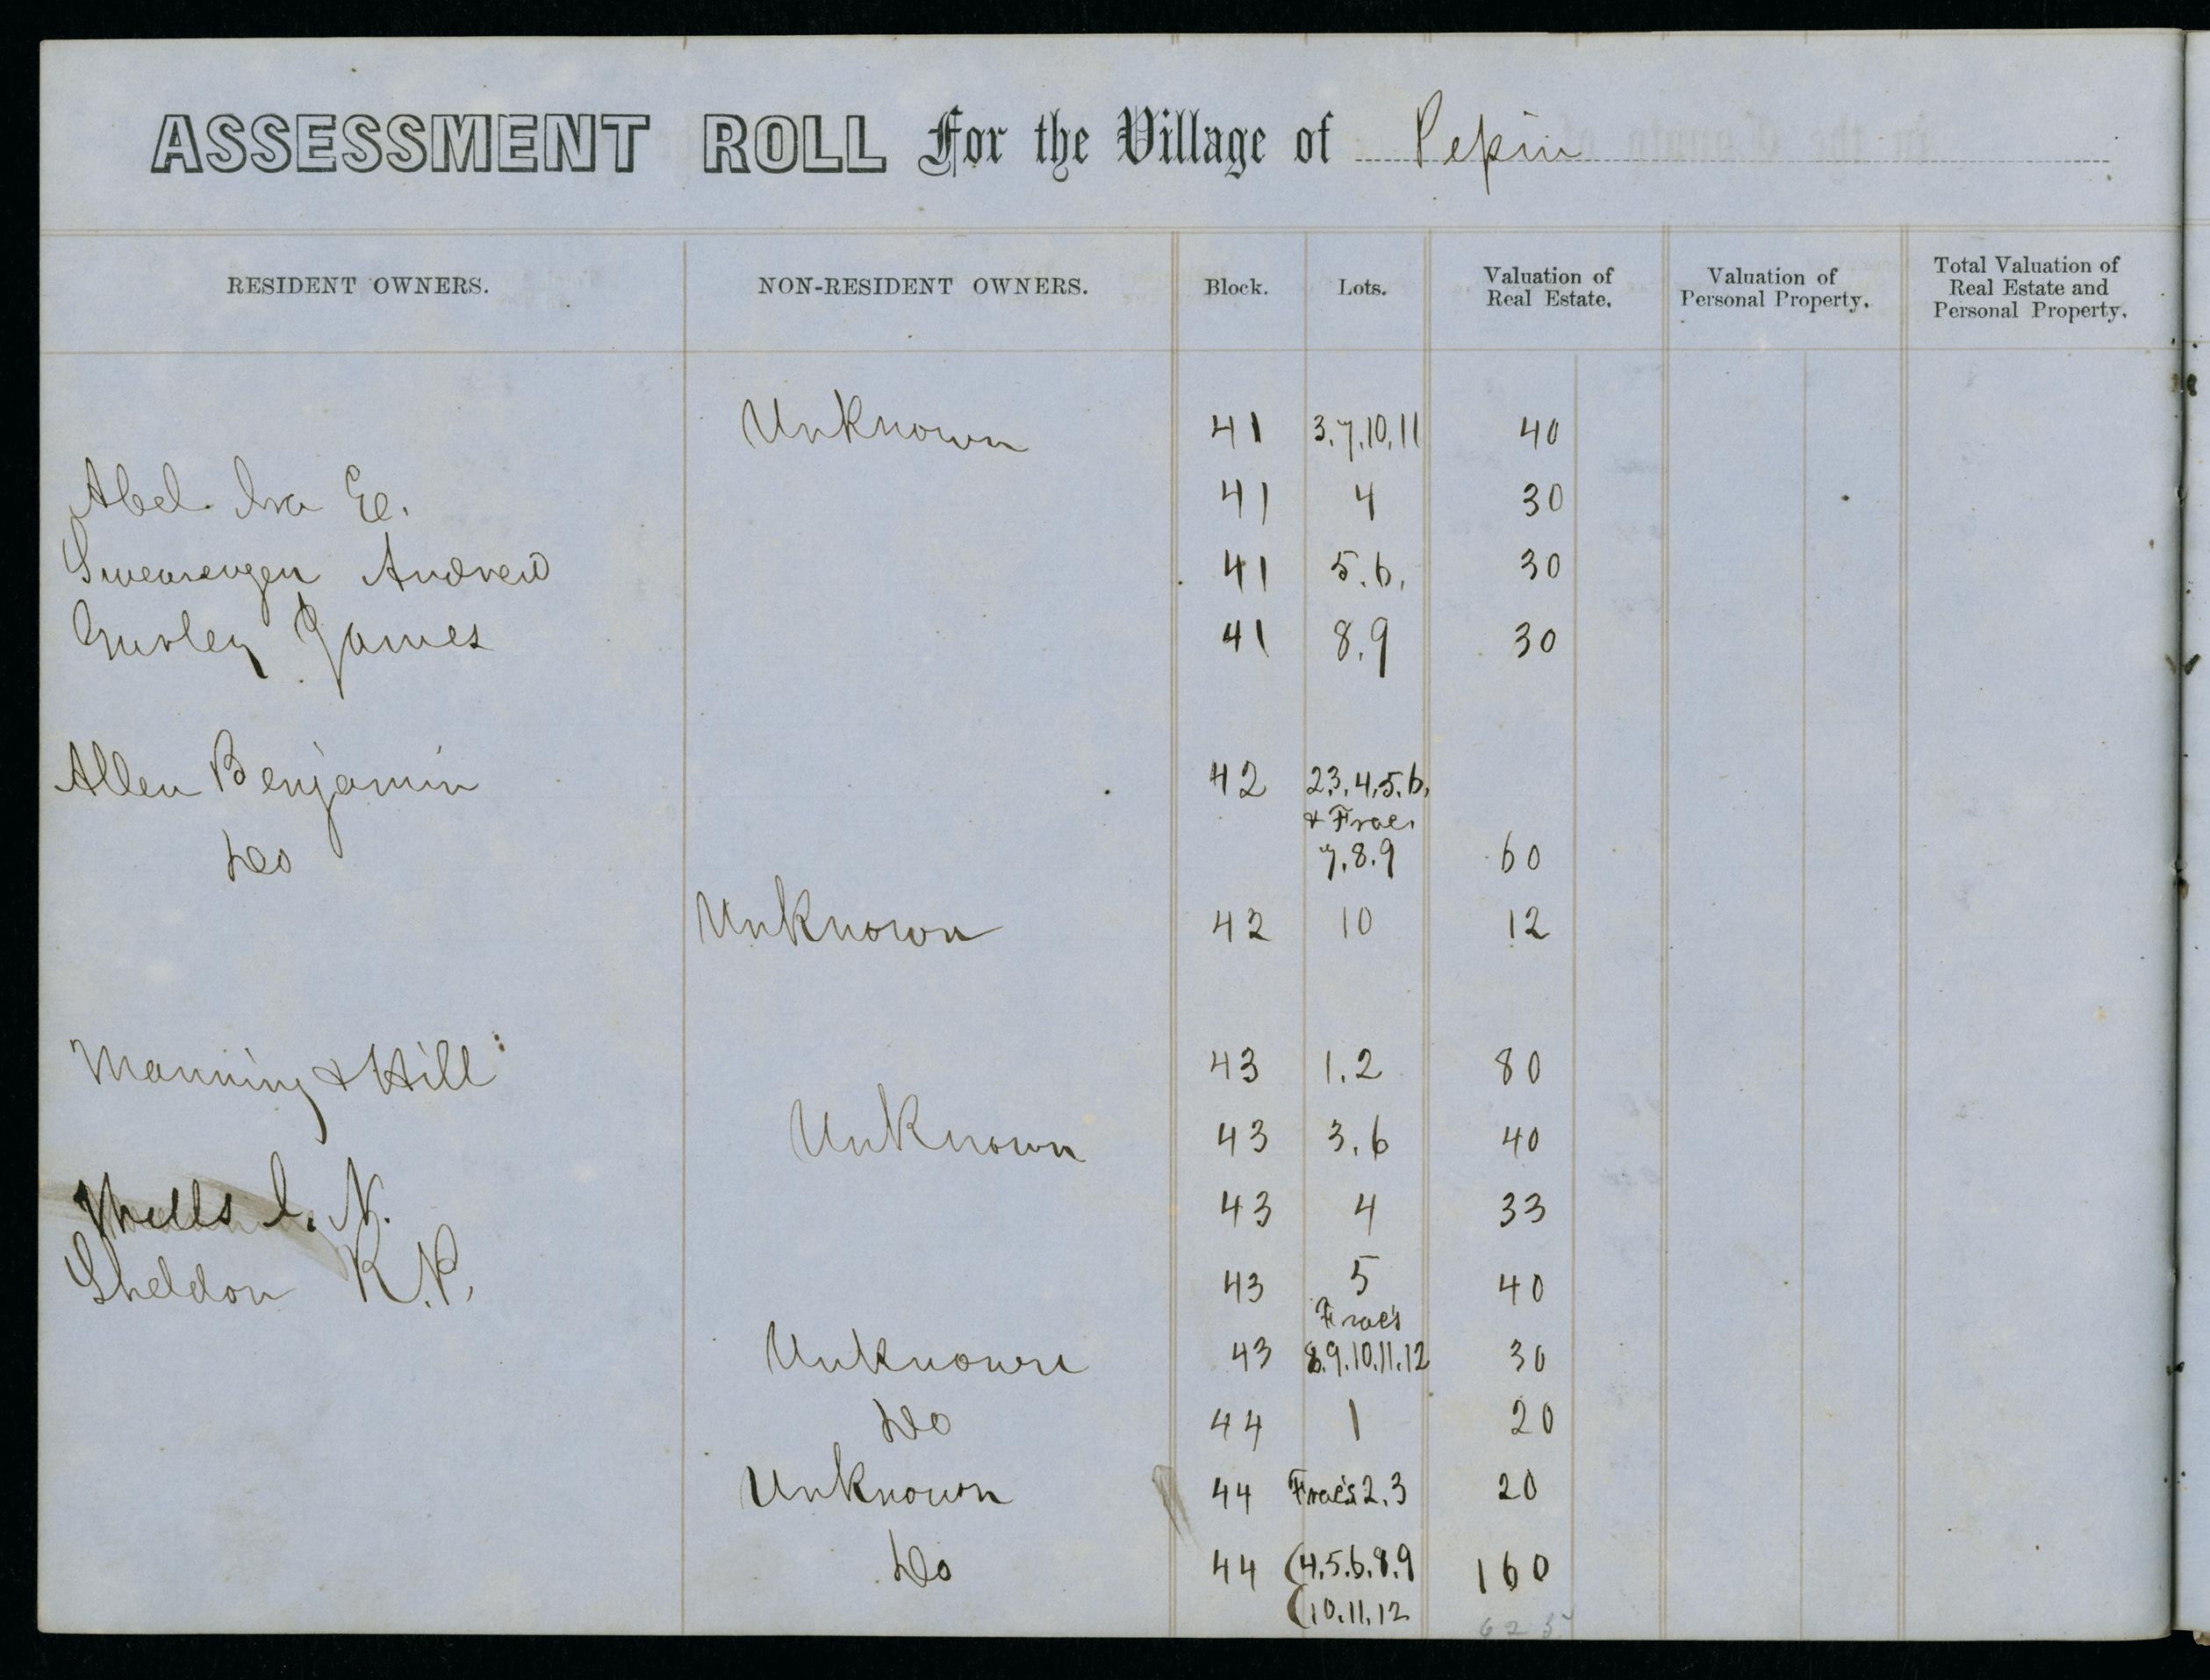 ASSESSMENT ROLL For the Village of Pepin
RESIDENT OWNERS. NON-RESIDENT OWNERS. Block. Lots. Valuation of Real Estate. Valuation of Personal Property. Total Valuation of Real Estate and Personal Property.
Unknown 41 3.7.10.11 40
Abel Ira E. 41 4 30
Swearengen Andrew 41 5.6. 30
Gurley James 41 8.9 30
Allen Benjamin 42 2.3.4.5.6.
& Frac.
Do 7.8.9 60
Unknown 42 10 12
Manning & Hill 43 1.2 80
Unknown 43 3.6 40
Mills I. N. 43 4 33
Sheldon R.P. 43 5 40
Frac's
Unknown 43 8.9.10.11.12 30
Do 44 1 20
Unknown 44 Frac's 2.3 20
Do 44 (4.5.6.8.9 160
(10.11.12
625